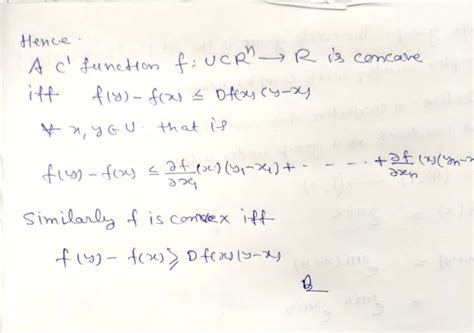 Hence.
A C' function f: U⊂Rⁿ → R is concave
iff f(y) - f(x) ≤ Df(x)(y-x)
∀ x, y ∈ U. that is
f(y) - f(x) ≤ ∂f/∂x₁ (x)(y₁-x₁) + - - - - + ∂f/∂xn (x)(yn-x
Similarly f is convex iff
f(y) - f(x) ≥ Df(x)(y-x)